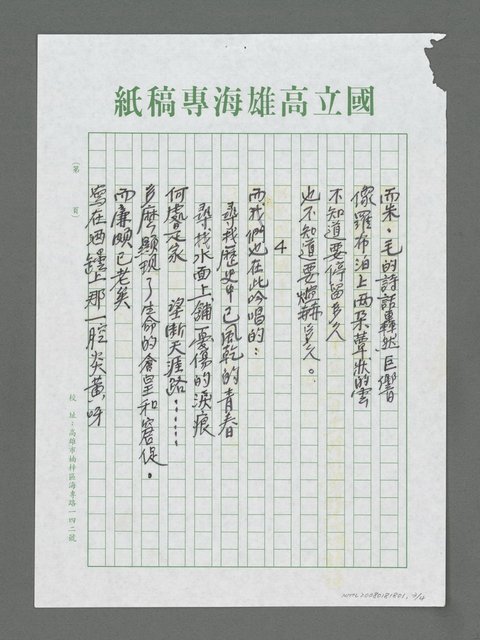 國立高雄海專稿紙
而朱・毛的詩話轟然巨響
像羅布泊上兩朵蕈狀的雲
不知道要停留多久
也不知道要赫多久。
4
而我們也在此吟唱的：
尋找歷史中已風乾的青春
尋找水面上,鋪憂傷的淚痕
何處是家　望斷天涯路……
多麼顯現了生命的倉皇和窘促。
而廉頗已老矣
寫在酒罈上那一腔炎黃呀
（第　頁）
校址：高雄市楠梓區海專路一四二號